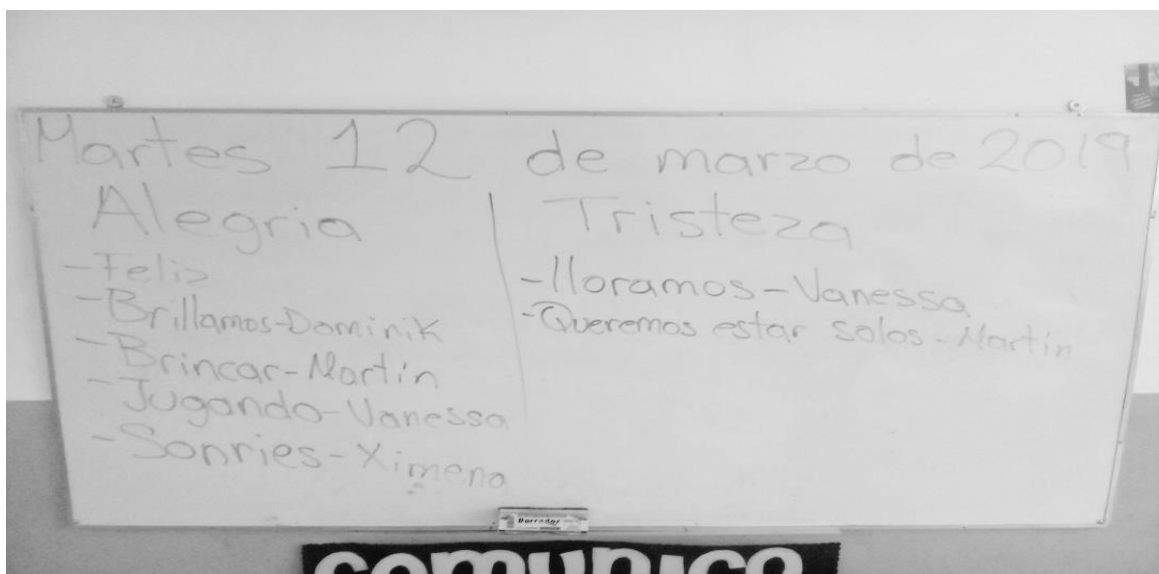 Martes 12 de marzo de 2019
Alegria
-Feliz
-Brillamos-Dominik
-Brincar-Martín
-Jugando-Vanessa
-Sonries-Ximena
Tristeza
-lloramos-Vanessa
-Queremos estar solos-Martín
Borrador
comunico